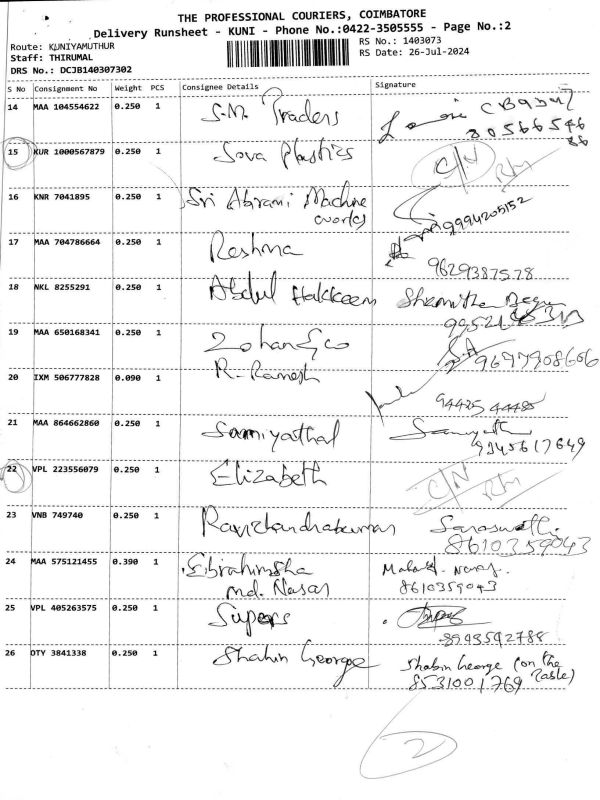 THE PROFESSIONAL COURIERS, COIMBATORE
Delivery Runsheet - KUNI - Phone No.:0422-3505555 - Page No.:2
Route: KUNIYAMUTHUR RS No.: 1403073
Staff: THIRUMAL RS Date: 26-Jul-2024
DRS No.: DCJB140307302
S No Consignment No Weight PCS Consignee Details Signature
14 MAA 104554622 0.250 1 S.M. Traders
15 KUR 1000567879 0.250 1 Sova Plastics C/N RTN
16 KNR 7041895 0.250 1 Sri Abirami Machine
works 9994205152
17 MAA 704786664 0.250 1 Reshma
9629387578
18 NKL 8255291 0.250 1 Abdul Hakkeem Shamitha Begum
19 MAA 650168341 0.250 1 Zohan & co 9697908606
20 IXM 506777828 0.090 1 R. Ramesh
94425 44485
21 MAA 864662860 0.250 1 Samiyathal
9345617649
22 VPL 223556079 0.250 1 Elizabeth C/N RTN
23 VNB 749740 0.250 1 Ravichandrakumar Saraswathi
8610359043
24 MAA 575121455 0.390 1 Ebrahimsha
md. Nasar 8610359043
25 VPL 405263575 0.250 1 Supers
8993592788
26 OTY 3841338 0.250 1 Shahin George Shabin George (on the
Table)
8531001769
2